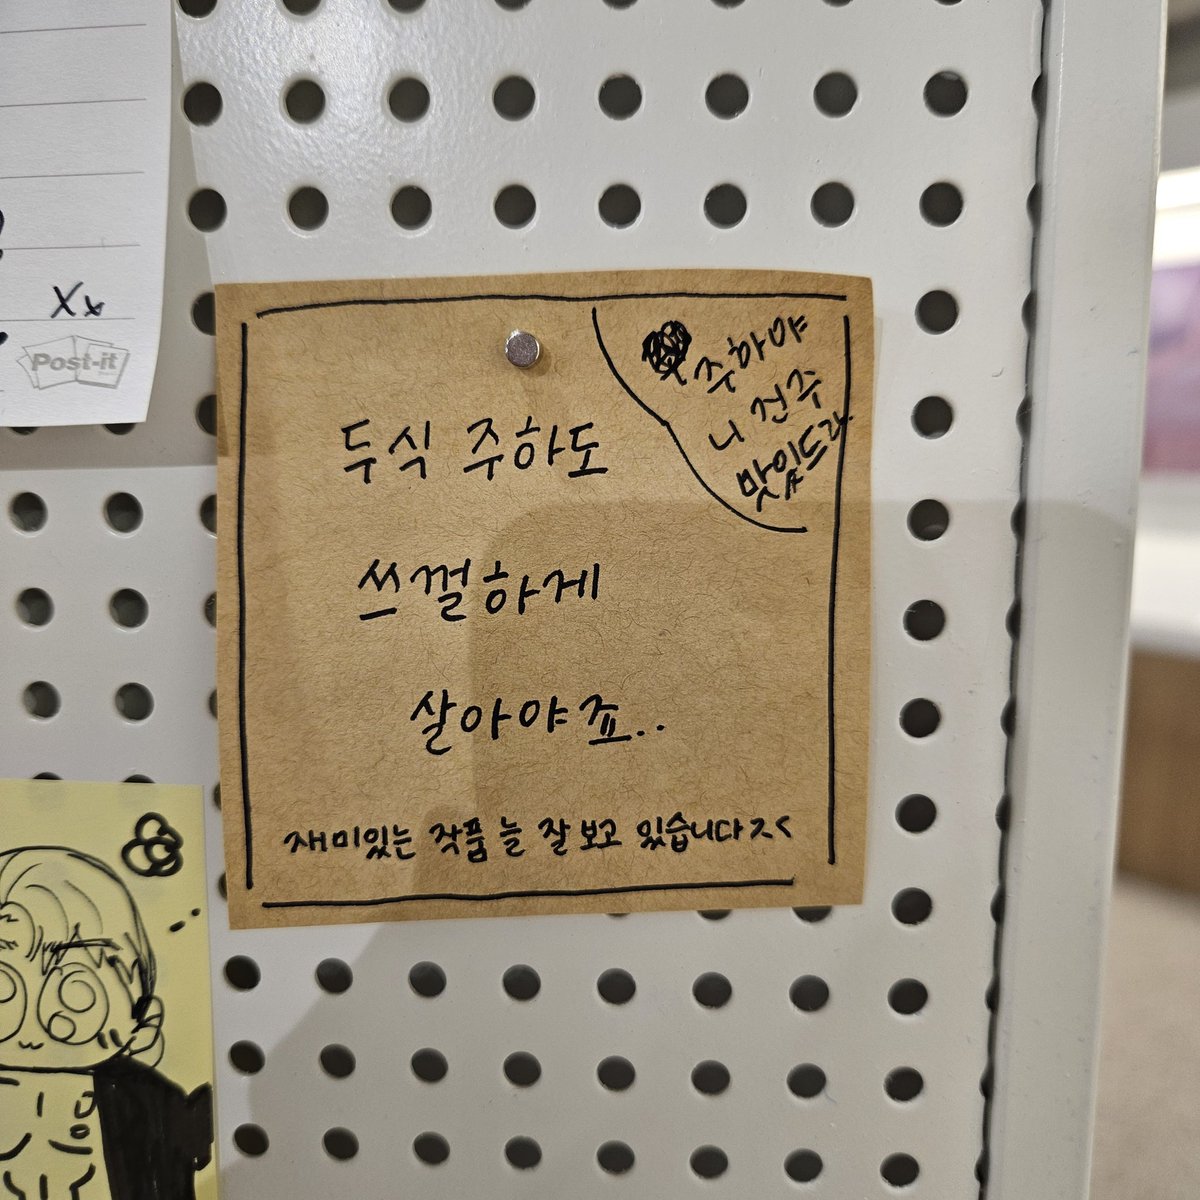 Xx
Post-it
주하야
니 전주
맛있드라
두식 주하도
쓰껄하게
살아야죠..
재미있는 작품 늘 잘 보고 있습니다ㅈ<